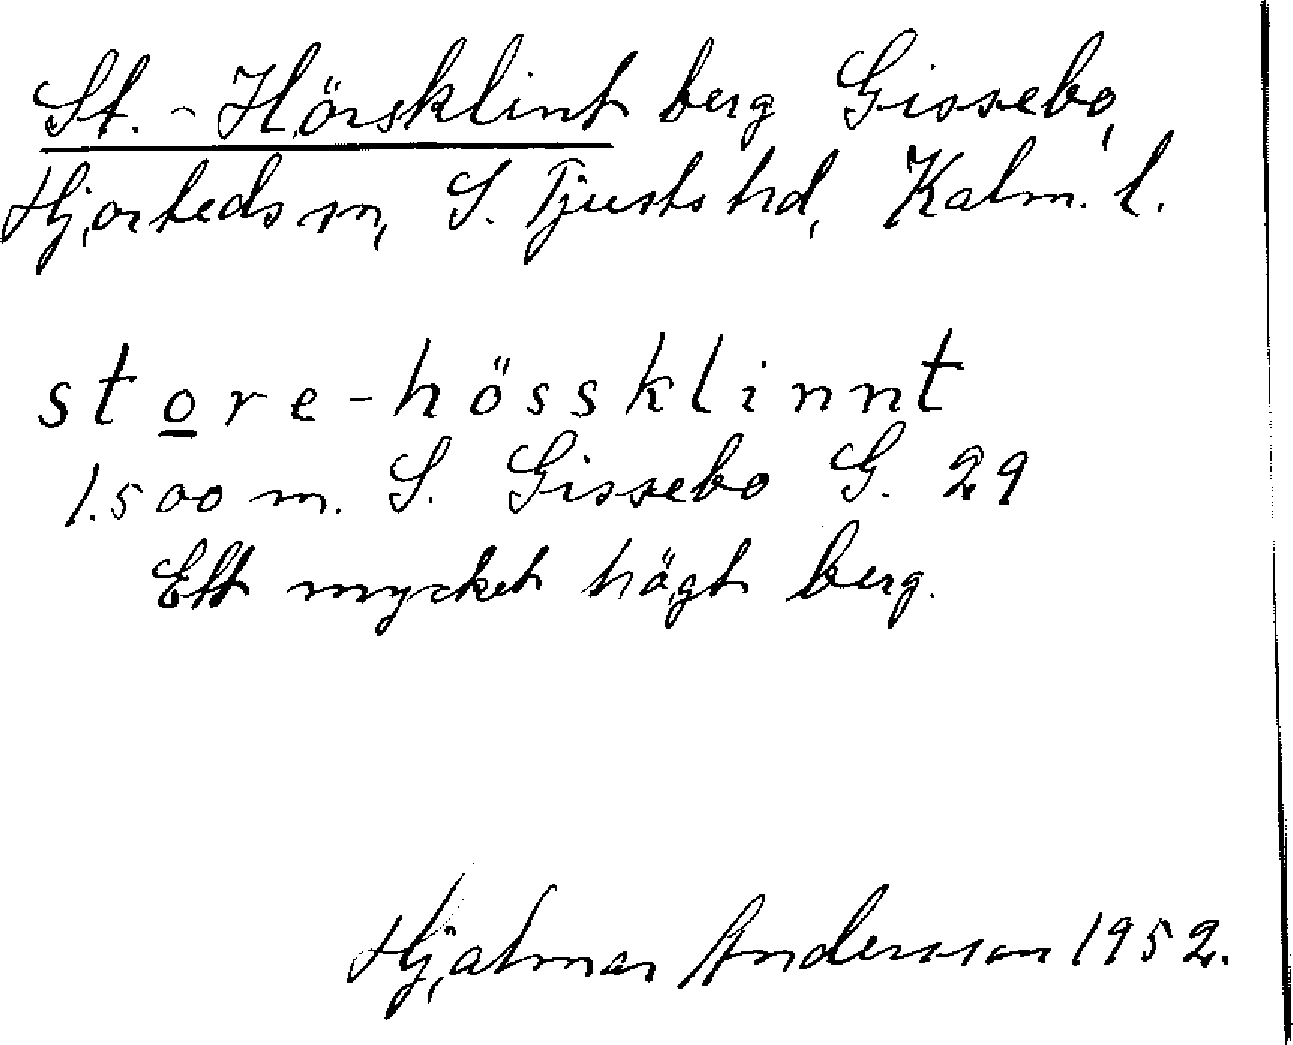 St. - Hörsklint berg Gissebo,
Hjorteds sn, S. Tjusts hd, Kalm. l.
store-hössklinnt
1.500 m. S. Gissebo G. 29
Ett mycket högt berg.
Hjalmar Andersson 1952.